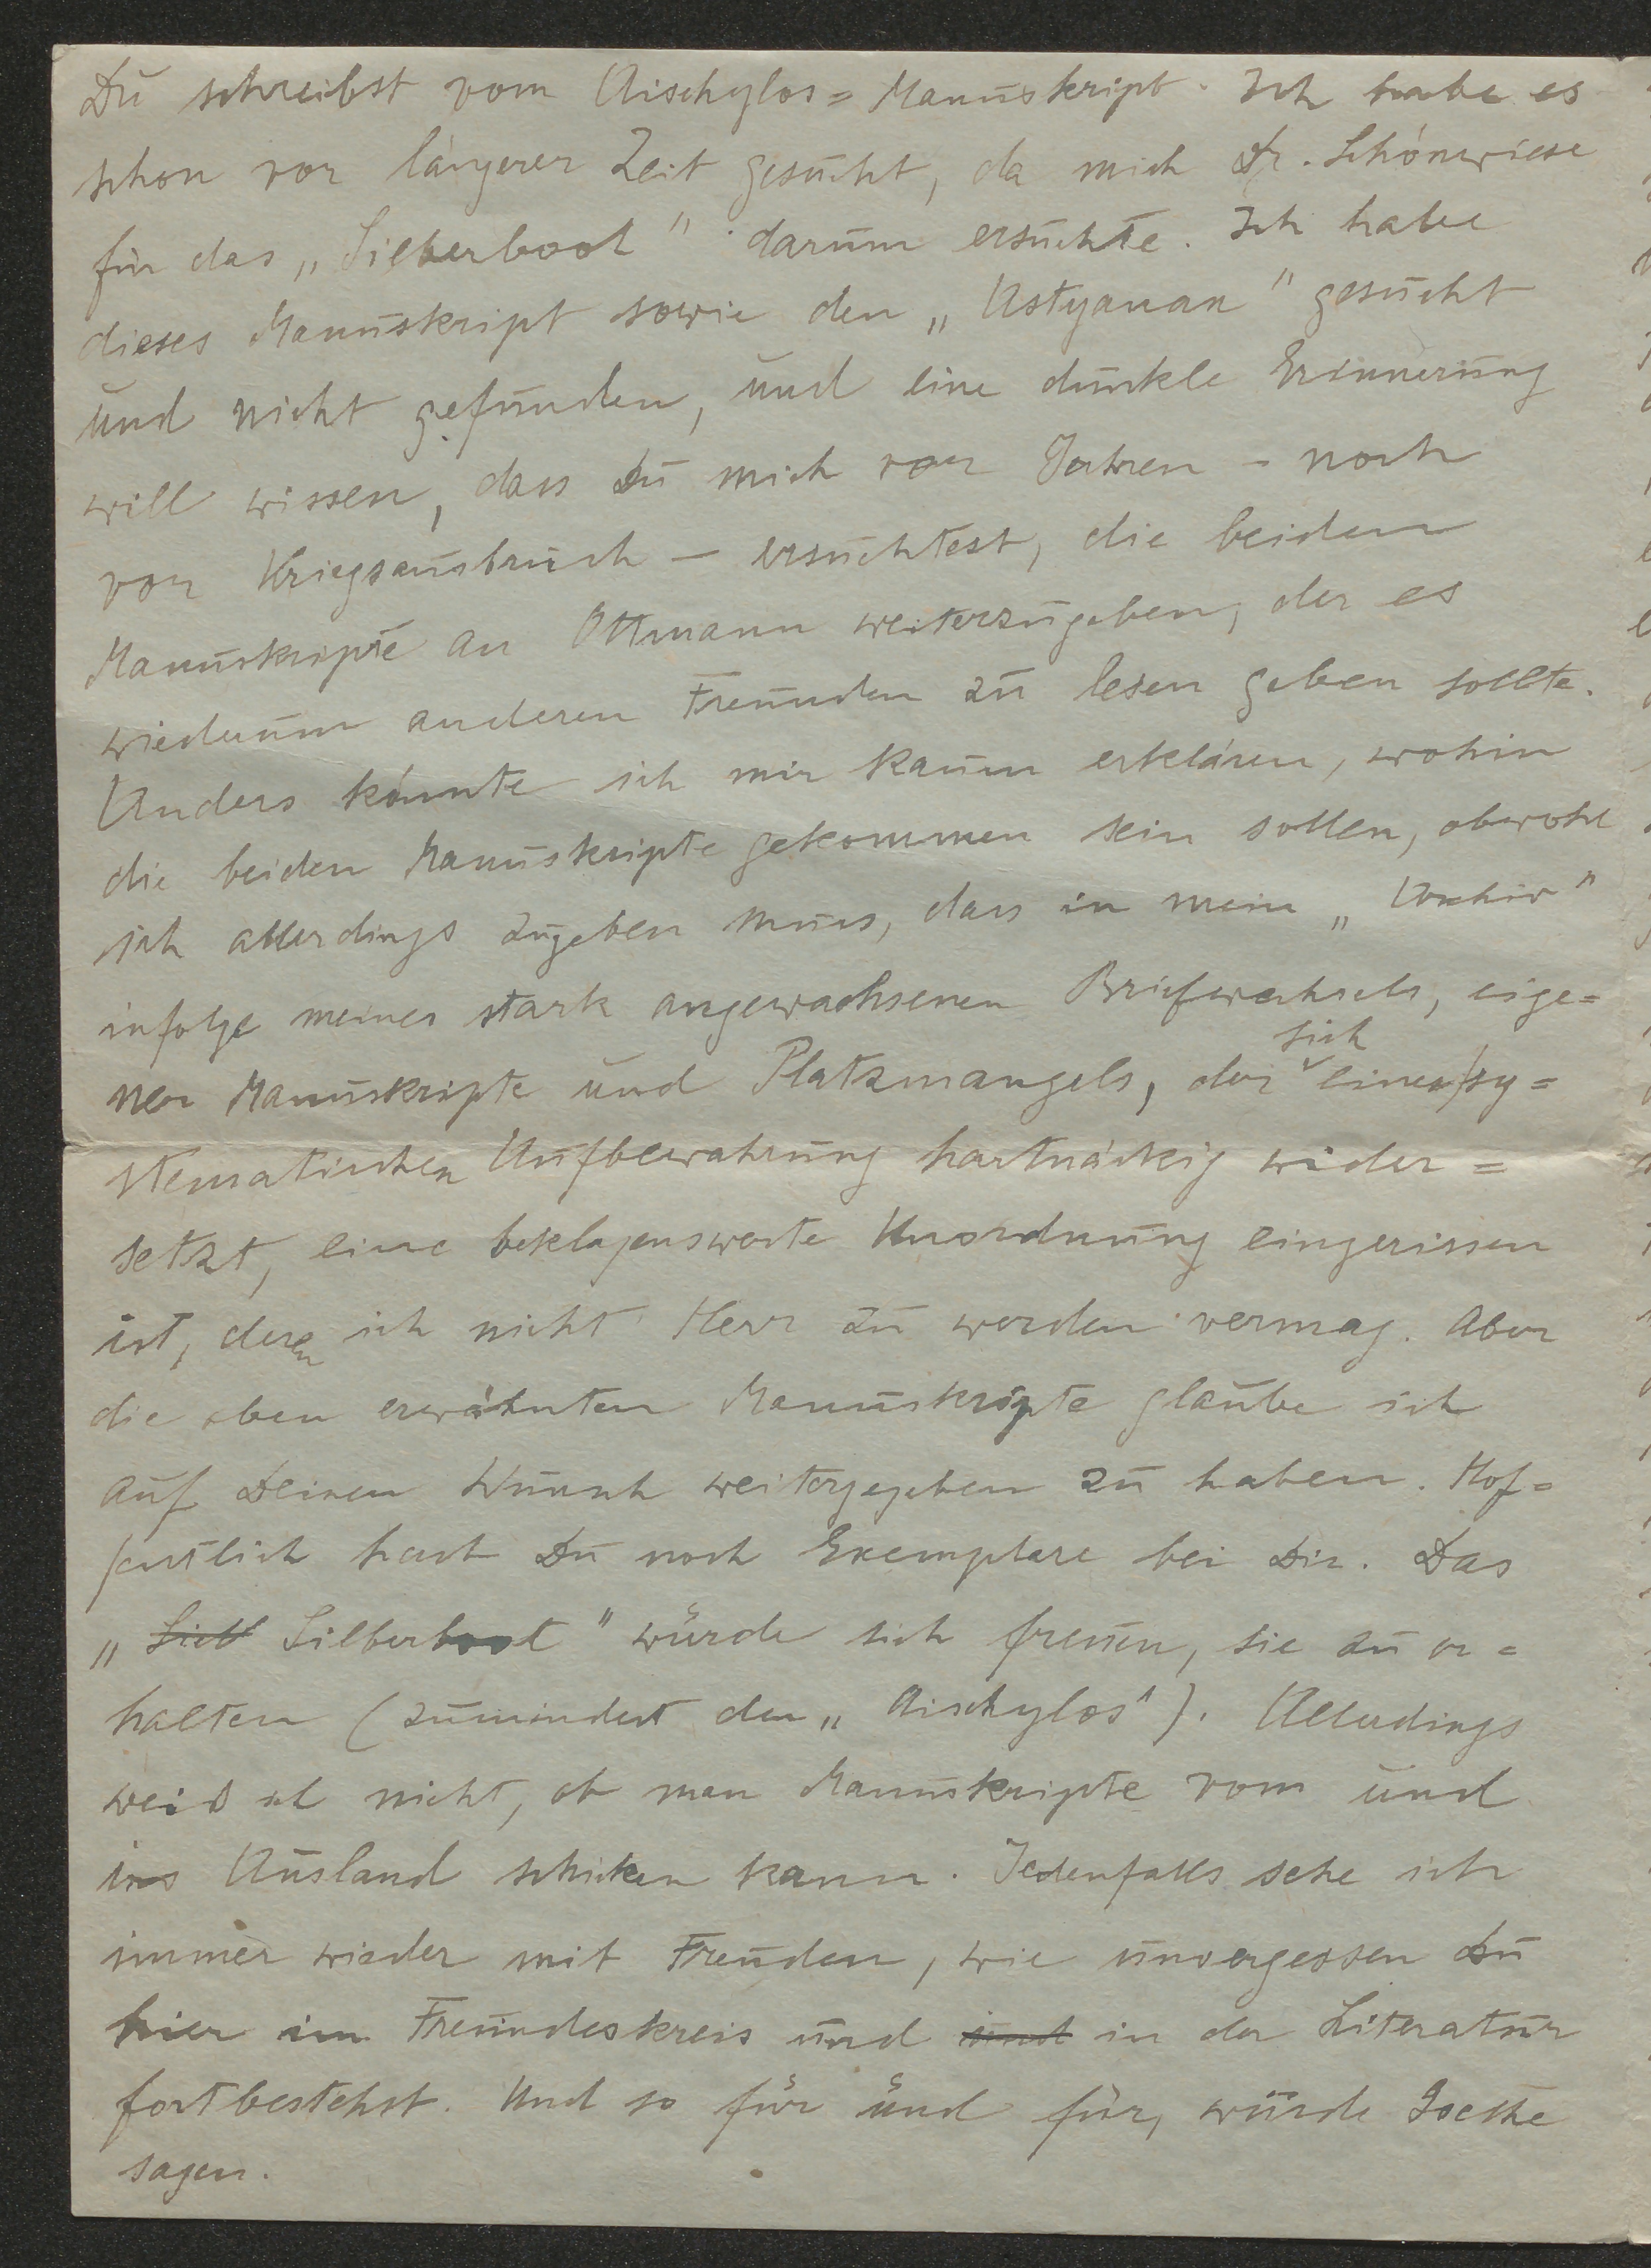 Du schreibst vom Aischylos=Manuskript. Ich habe es
schon vor längerer Zeit gesucht, da mich Dr. Schönwiese
für das „Silberboot" darum ersuchte. Ich habe
dieses Manuskript sowie den „Astyanax" gesucht
und nicht gefunden, und eine dunkle Erinnerung
will wissen, dass Du mich vor Jahren – noch
vor Kriegsausbruch – ersuchtest, die beiden
Manuskripte an Ottmann weiterzugeben, der es
wiederum anderen Freunden zu lesen geben sollte.
Anders könnte ich mir kaum erklären, wohin
die beiden Manuskripte gekommen sein sollen, obwohl
ich allerdings zugeben muss, dass in mein „Archiv"
infolge meines stark angewachsenen Briefwechsels, eige=
ner Manuskripte und Platzmangels, der sich einer sy=
stematischen Aufbewahrung hartnäckig wider=
setzt, eine beklagenswerte Unordnung eingerissen
ist, deren ich nicht Herr zu werden vermag. Aber
die oben erwähnten Manuskripte glaube ich
auf Deinen Wunsch weitergegeben zu haben. Hof=
fentlich hast Du noch Exemplare bei Dir. Das
„Silberboot" würde sich freuen, sie zu er=
halten (zumindest den „Aischylos"). Allerdings
weiß ich nicht, ob man Manuskripte vom und
ins Ausland schicken kann. Jedenfalls sehe ich
immer wieder mit Freuden, wie unvergessen Du
hier im Freundeskreis und in der Literatur
fortbestehst. Und so für und für, würde Goethe
sagen.